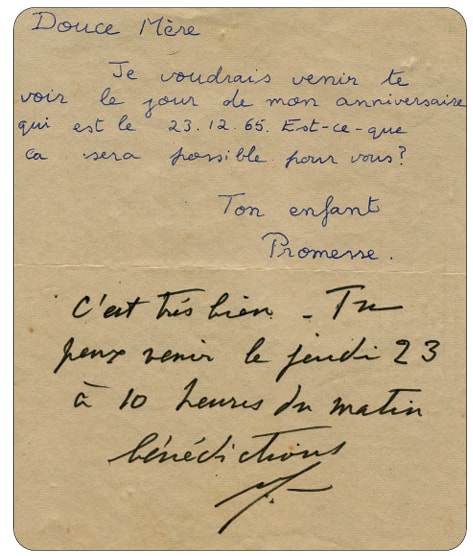 Douce Mère
Je voudrais venir te
voir le jour de mon anniversaire
qui est le 23.12.65. Est-ce-que
ca sera possible pour vous?
Ton enfant
Promesse.
C'est très bien - Tu
peux venir le jeudi 23
à 10 heures du matin
bénédictions